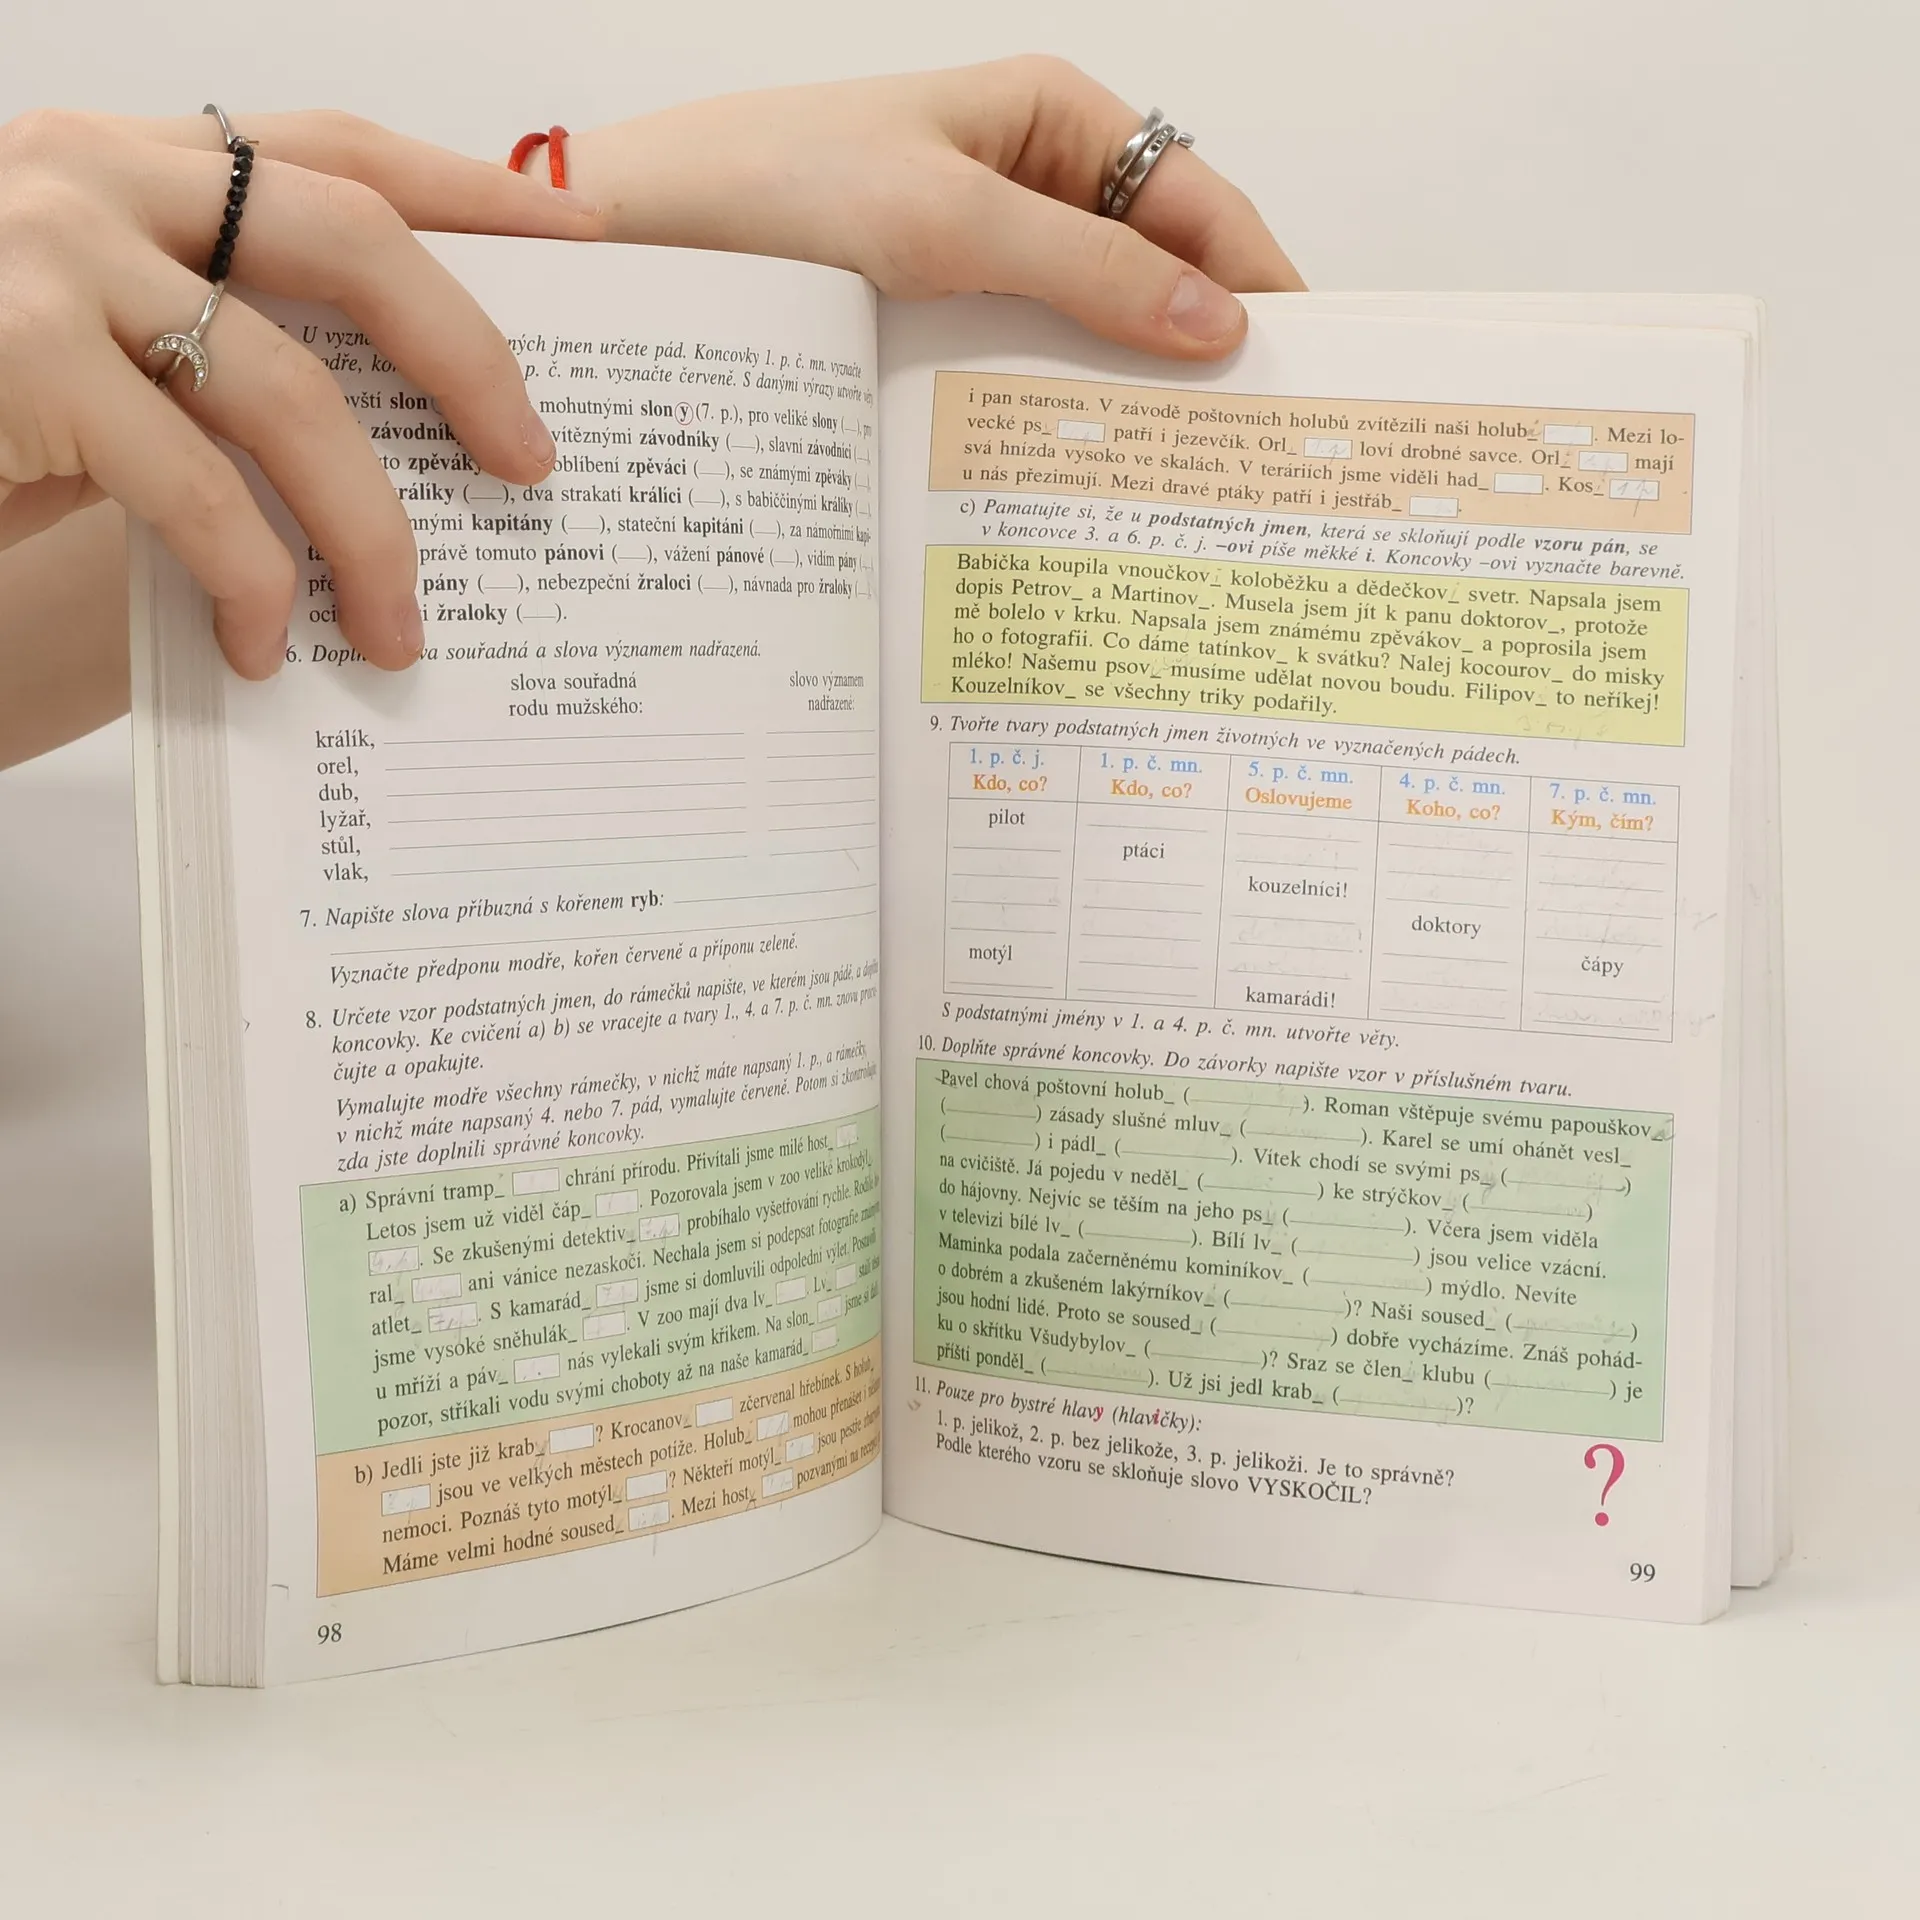 U
ných jmen určete pád. Koncovky 1. p. č. mn. vyznačte
p. č. mn. vyznačte červeně. S danými výrazy utvořte
slon mohutnými slony (7. p.), pro veliké slony (__),
vítěznými závodníky (__), slavní závodníci (__),
oblíbení zpěváci (__), se známými zpěváky (__),
(__), dva strakatí králíci (__), s babiččinými králíky (__),
kapitány (__), stateční kapitáni (__), za námořními
právě tomuto pánovi (__), vážení pánové (__), vidím pány (__),
pány (__), nebezpeční žraloci (__), návnada pro žraloky (__),
žraloky (__).
6. souřadná a slova významem nadřazená.
slova souřadná slovo významem
rodu mužského: nadřazené:
králík,
orel,
dub,
lyžař,
stůl,
vlak,
7. Napište slova příbuzná s kořenem ryb:
Vyznačte předponu modře, kořen červeně a příponu zeleně.
8. Určete vzor podstatných jmen, do rámečků napište, ve kterém jsou pádě, a
koncovky. Ke cvičení a) b) se vracejte a tvary 1., 4. a 7. p. č. mn. znovu procvi-
čujte a opakujte.
Vymalujte modře všechny rámečky, v nichž máte napsaný 1. p., a rámečky,
v nichž máte napsaný 4. nebo 7. pád, vymalujte červeně. Potom si zkontrolujte,
zda jste doplnili správné koncovky.
a) Správní tramp_ chrání přírodu. Přivítali jsme milé host_ .
Letos jsem už viděl čáp_ . Pozorovala jsem v zoo veliké krokodýl_
. Se zkušenými detektiv_ probíhalo vyšetřování rychle.
ral_ ani vánice nezaskočí. Nechala jsem si podepsat fotografie
atlet_ . S kamarád_ jsme si domluvili odpolední výlet. Postavili
jsme vysoké sněhulák_ . V zoo mají dva lv_ . Lv_ stáli
u mříží a páv_ nás vylekali svým křikem. Na slon_ jsme si dali
pozor, stříkali vodu svými choboty až na naše kamarád_ .
b) Jedli jste již krab_ ? Krocanov_ zčervenal hřebínek. S holub_
jsou ve velkých městech potíže. Holub_ mohou přenášet i
nemoci. Poznáš tyto motýl_ ? Někteří motýl_ jsou pestře
Máme velmi hodné soused_ . Mezi host_ pozvanými na
98
i pan starosta. V závodě poštovních holubů zvítězili naši holub_ . Mezi lo-
vecké ps_ patří i jezevčík. Orl_ loví drobné savce. Orl_ mají
svá hnízda vysoko ve skalách. V teráriích jsme viděli had_ . Kos_ 1.p
u nás přezimují. Mezi dravé ptáky patří i jestřáb_ .
c) Pamatujte si, že u podstatných jmen, která se skloňují podle vzoru pán, se
v koncovce 3. a 6. p. č. j. –ovi píše měkké i. Koncovky –ovi vyznačte barevně.
Babička koupila vnoučkov_ koloběžku a dědečkov_ svetr. Napsala jsem
dopis Petrov_ a Martinov_. Musela jsem jít k panu doktorov_, protože
mě bolelo v krku. Napsala jsem známému zpěvákov_ a poprosila jsem
ho o fotografii. Co dáme tatínkov_ k svátku? Nalej kocourov_ do misky
mléko! Našemu psov_ musíme udělat novou boudu. Filipov_ to neříkej!
Kouzelníkov_ se všechny triky podařily.
9. Tvořte tvary podstatných jmen životných ve vyznačených pádech.
1. p. č. j. 1. p. č. mn. 5. p. č. mn. 4. p. č. mn. 7. p. č. mn.
Kdo, co? Kdo, co? Oslovujeme Koho, co? Kým, čím?
pilot
ptáci
kouzelníci!
doktory
motýl čápy
kamarádi!
S podstatnými jmény v 1. a 4. p. č. mn. utvořte věty.
10. Doplňte správné koncovky. Do závorky napište vzor v příslušném tvaru.
Pavel chová poštovní holub_ (__). Roman vštěpuje svému papouškov_
(__) zásady slušné mluv_ (__). Karel se umí ohánět vesl_
(__) i pádl_ (__). Vítek chodí se svými ps_ (__)
na cvičiště. Já pojedu v neděl_ (__) ke strýčkov_ (__)
do hájovny. Nejvíc se těším na jeho ps_ (__). Včera jsem viděla
v televizi bílé lv_ (__). Bílí lv_ (__) jsou velice vzácní.
Maminka podala začerněnému kominíkov_ (__) mýdlo. Nevíte
o dobrém a zkušeném lakýrníkov_ (__)? Naši soused_ (__)
jsou hodní lidé. Proto se soused_ (__) dobře vycházíme. Znáš pohád-
ku o skřítku Všudybylov_ (__)? Sraz se člen_ klubu (__) je
příští ponděl_ (__). Už jsi jedl krab_ (__)?
11. Pouze pro bystré hlavy (hlavičky):
1. p. jelikož, 2. p. bez jelikože, 3. p. jelikoži. Je to správně?
Podle kterého vzoru se skloňuje slovo VYSKOČIL?
?
99